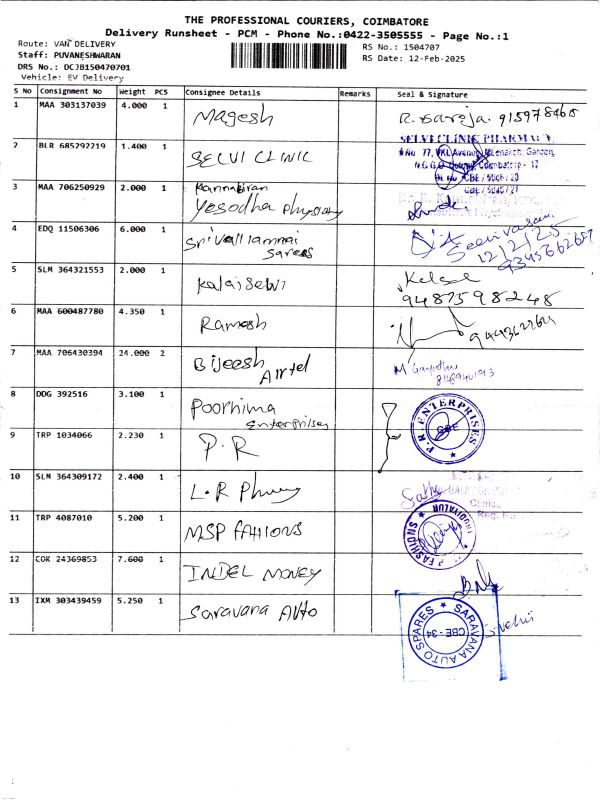 THE PROFESSIONAL COURIERS, COIMBATORE
Delivery Runsheet - PCM - Phone No.:0422-3505555 - Page No.:1
Route: VAN DELIVERY
Staff: PUVANESHWARAN
DRS No.: DCJB150470701
Vehicle: EV Delivery
RS No.: 1504707
RS Date: 12-Feb-2025
S No Consignment No Weight PCS Consignee Details Remarks Seal & Signature
1 MAA 303137039 4.000 1 Magesh R. Saroja. 915978460
2 BLR 685292219 1.400 1 SELVI CLINIC
SELVI CLINIC PHARMACY,
3 MAA 706250929 2.000 1 Kannabiran
Yesodha Physiary
4 EDQ 11506306 6.000 1 Srivalliammai
Sarees
Seenivasan
12/2/25
9345662687
5 SLM 364321553 2.000 1 Kalaiselvi
9487598248
6 MAA 600487780 4.350 1 Ramesh
7 MAA 706430394 24.000 2 Bijeesh
Airtel
8 DDG 392516 3.100 1 Poornima
Enterprises
P.R ENTERPRISES
CBE
9 TRP 1034066 2.230 1 P.R
10 SLM 364309172 2.400 1 L.R
11 TRP 4087010 5.200 1 MSP FAHIONS
FASHIONS
12 COK 24369853 7.600 1 INDEL MONEY
13 IXM 303439459 5.250 1 Saravana Auto
SARAVANA AUTO SPARES
CBE - 34